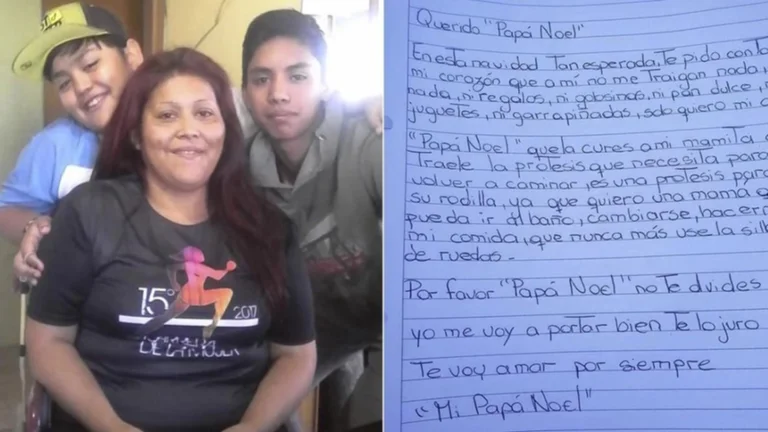 15°
2017
DE LA MUJER
Querido "Papá Noel"
En esta navidad Tan esperada, te pido con to
mi corazón que a mí no me Traigan nada,
nada, ni regalos, ni golosinas, ni pan dulce,
juguetes, ni garrapiñadas, solo quiero mi
"Papá Noel" que la cures a mi mamita
Traele la protesis que necesita para
volver a caminar, es una protesis para
su rodilla, ya que quiero una mamá q
pueda ir al baño, cambiarse, hacerm
mi comida, que nunca más use la sill
de ruedas.
Por favor "Papá Noel" no Te olvides
yo me voy a portar bien Te lo juro
Te voy amar por siempre
"Mi Papá Noel"